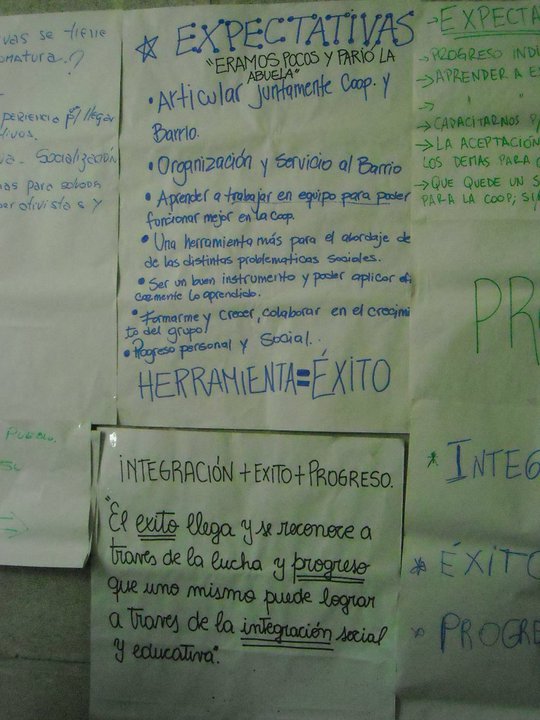 vas se tiene
omatura.?
periencia p/ llegar
tivos.
va - Socialización
as para
arativistas y
PUEBLO.
☆ EXPECTATIVAS
"ERAMOS POCOS Y PARIO LA
ABUELA"
• Articular juntamente Coop. y
Barrio.
• Organización y Servicio al Barrio
• Aprender a trabajar en equipo para poder
funcionar mejor en la Coop.
• Una herramienta más para el abordaje de
de las distintas problematicas sociales.
• Ser un buen instrumento y poder aplicar efi
cazmente lo aprendido.
• Formarme y Crecer, colaborar en el crecimien
to del grupo
• Progreso personal y Social..
HERRAMIENTA=ÉXITO
INTEGRACIÓN + EXITO + PROGRESO.
"El exito llega y se reconoce a
través de la lucha y progreso
que uno mismo puede lograr
a traves de la integración social
y educativa".
→ EXPECTA
→ PROGRESO INDI
→ APRENDER A E
→ " "
→ CAPACITARNOS P
→ LA ACEPTACIÓN
LOS DEMAS PARA
→ QUE QUEDE UN S
PARA LA COOP; SI
PR
* INTEG
* ÉXITO
* PROGRE